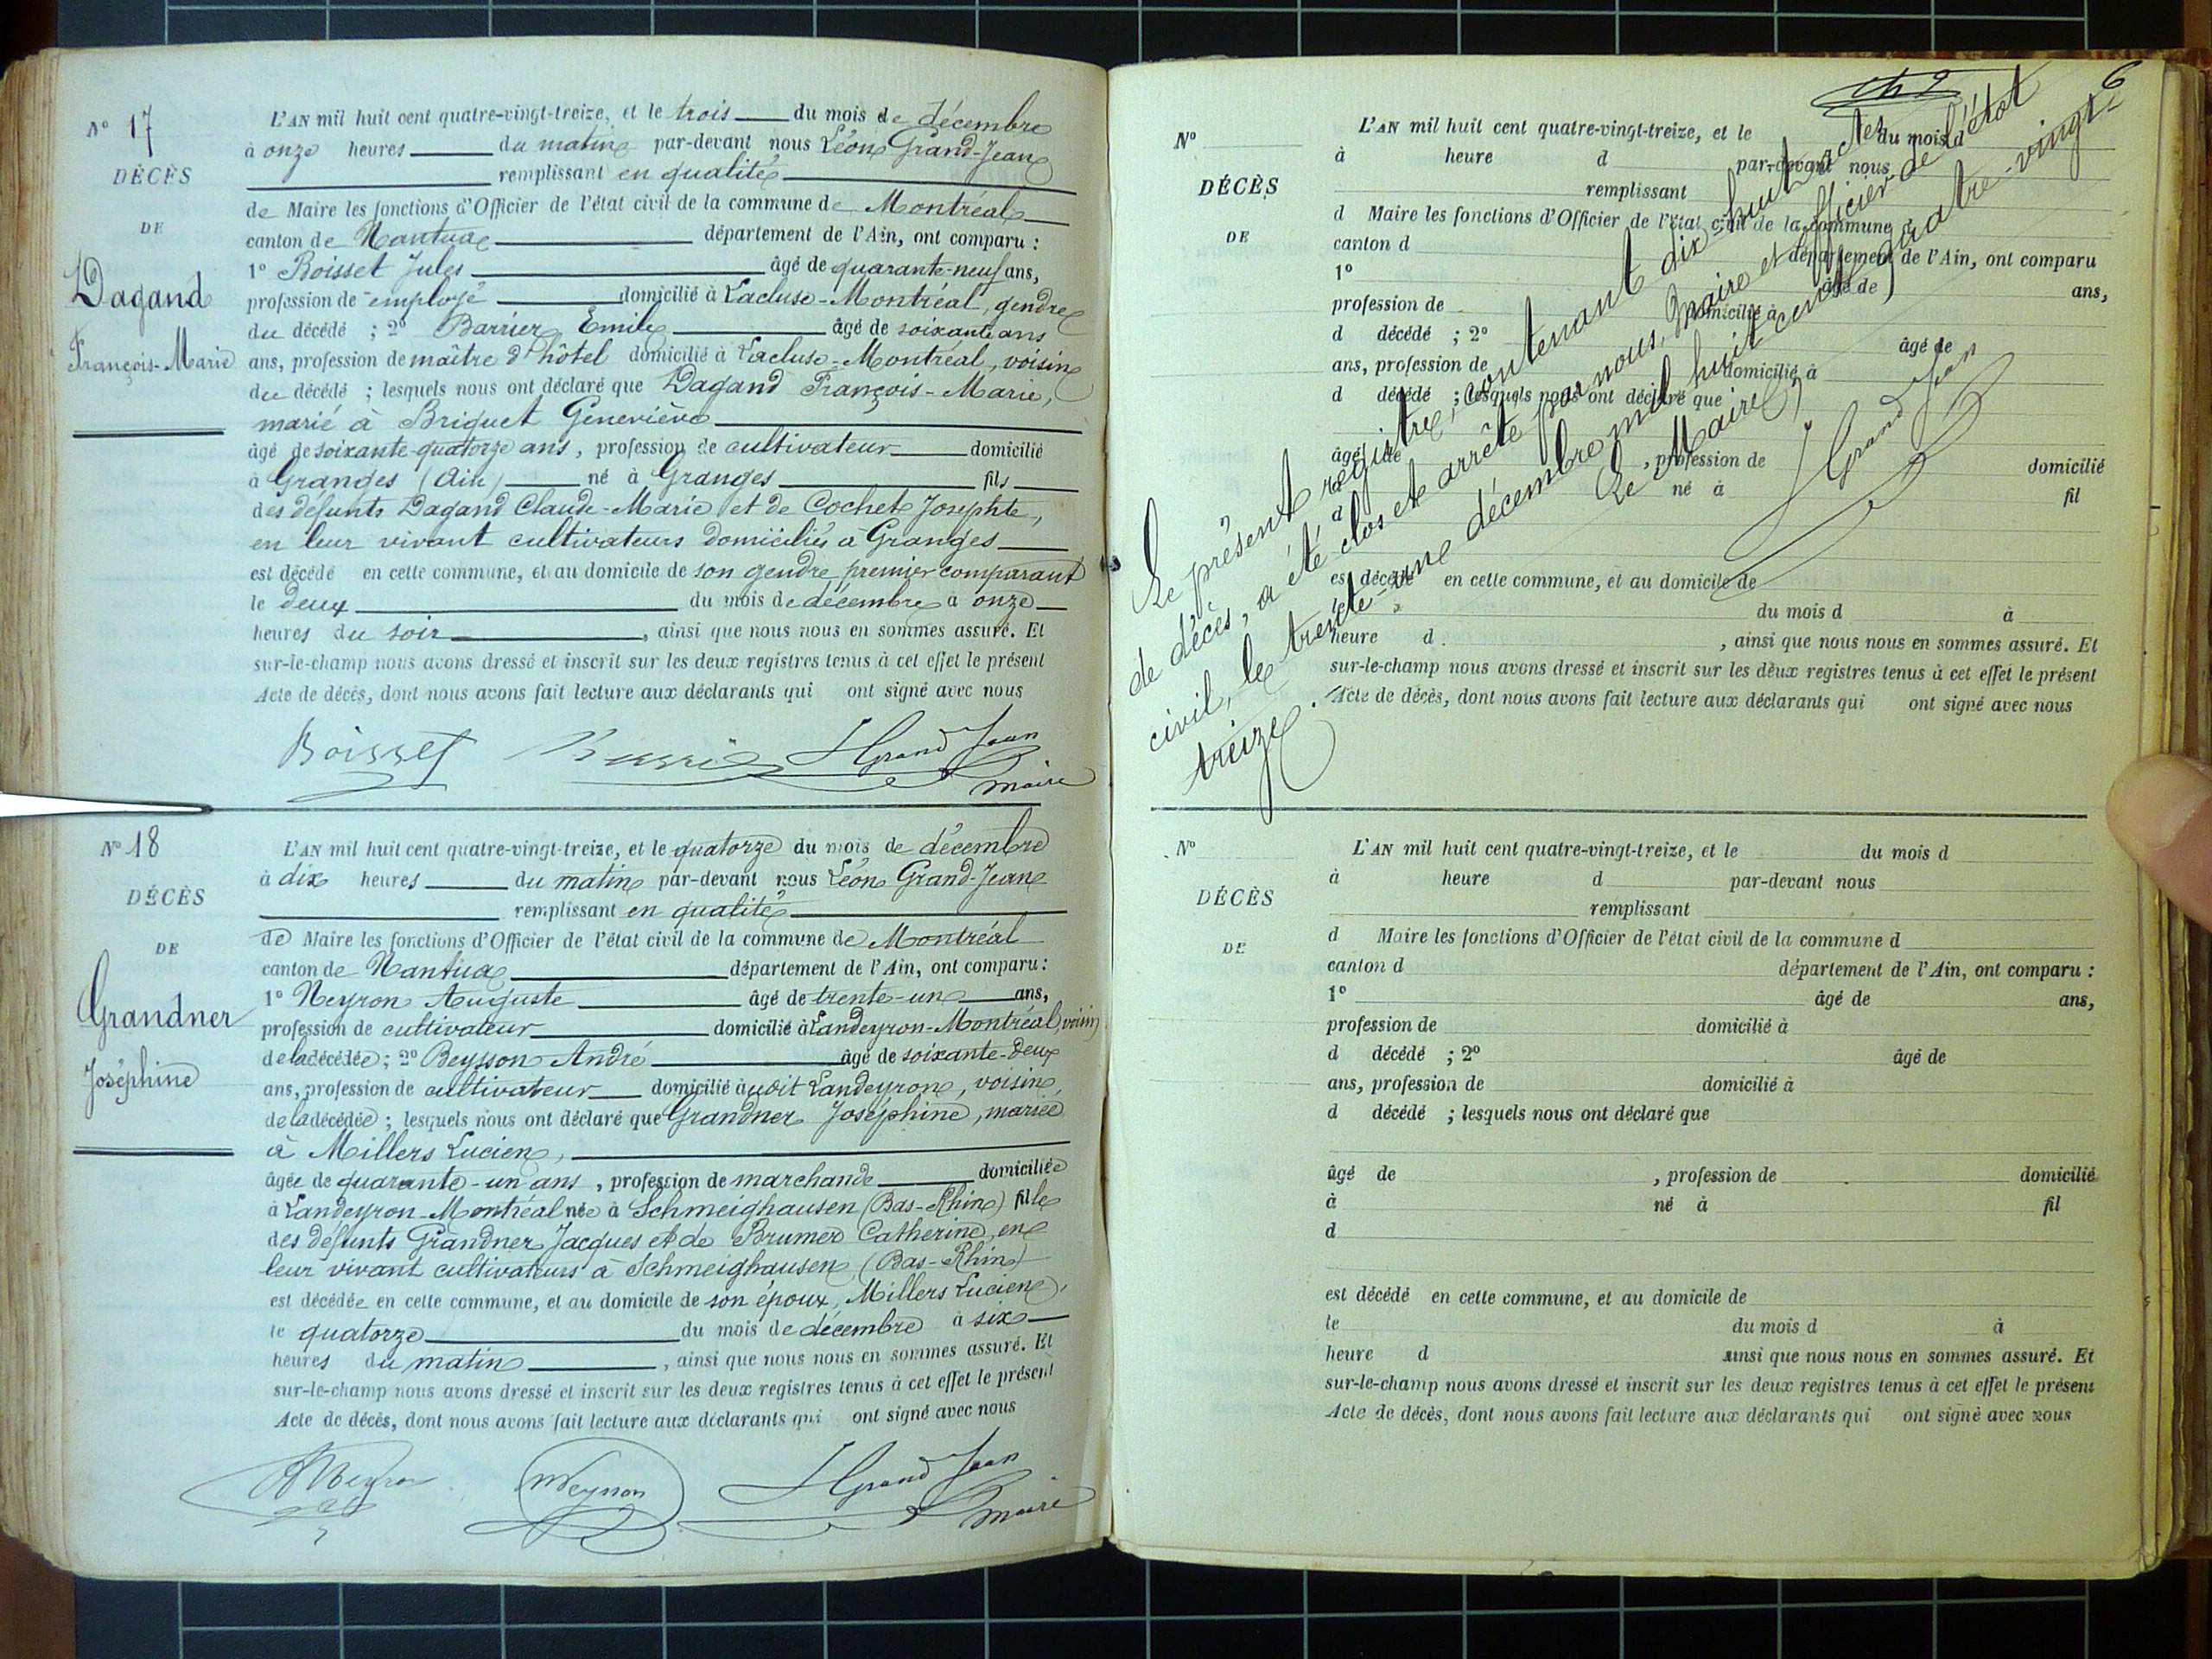 N° 17
DÉCÈS
DE
Dagand
François-Marie
L'AN mil huit cent quatre-vingt-treize, et le trois du mois de décembre
à onze heures du matin par-devant nous Léon Grand-Jean
remplissant en qualité
de Maire les fonctions d'Officier de l'état civil de la commune de Montréal
canton de Nantua département de l'Ain, ont comparu :
1° Boisset Jules âgé de quarante-neuf ans,
profession de employé domicilié à Lacluse-Montréal, gendre
du décédé ; 2° Barrier Emile âgé de soixante ans
ans, profession de maître d'hôtel domicilié à Lacluse-Montréal, voisin
du décédé ; lesquels nous ont déclaré que Dagand François-Marie,
marié à Briquet Geneviève
âgé de soixante-quatorze ans, profession de cultivateur domicilié
à Granges (Ain) né à Granges fils
des défunts Dagand Claude-Marie et de Cochet Josephte,
en leur vivant cultivateurs domiciliés à Granges
est décédé en cette commune, et au domicile de son gendre premier comparant
le deux du mois de décembre à onze
heures du soir, ainsi que nous nous en sommes assuré. Et
sur-le-champ nous avons dressé et inscrit sur les deux registres tenus à cet effet le présent
Acte de décès, dont nous avons fait lecture aux déclarants qui ont signé avec nous
Boisset Barrier L Grand Jean
maire
N° 18
DÉCÈS
DE
Grandner
Joséphine
L'AN mil huit cent quatre-vingt-treize, et le quatorze du mois de décembre
à dix heures du matin par-devant nous Léon Grand-Jean
remplissant en qualité
de Maire les fonctions d'Officier de l'état civil de la commune de Montréal
canton de Nantua département de l'Ain, ont comparu :
1° Neyron Auguste âgé de trente-un ans,
profession de cultivateur domicilié à Landeyron-Montréal, voisin
de la décédée ; 2° Beysson André âgé de soixante-deux
ans, profession de cultivateur domicilié audit Landeyron, voisin
de la décédée ; lesquels nous ont déclaré que Grandner Joséphine, mariée
à Millers Lucien,
âgée de quarante-un ans, profession de marchande domiciliée
à Landeyron-Montréal née à Schmeighausen (Bas-Rhin) fille
des défunts Grandner Jacques et de Brumer Catherine, en
leur vivant cultivateurs à Schmeighausen (Bas-Rhin)
est décédée en cette commune, et au domicile de son époux, Millers Lucien,
le quatorze du mois de décembre à six
heures du matin, ainsi que nous nous en sommes assuré. Et
sur-le-champ nous avons dressé et inscrit sur les deux registres tenus à cet effet le présent
Acte de décès, dont nous avons fait lecture aux déclarants qui ont signé avec nous
L Grand Jean
maire
6
N°
DÉCÈS
DE
L'AN mil huit cent quatre-vingt-treize, et le du mois d
à heure d par-devant nous
remplissant
d Maire les fonctions d'Officier de l'état civil de la commune d
canton d département de l'Ain, ont comparu
1° âgé de ans,
profession de domicilié à
d décédé ; 2° âgé de
ans, profession de domicilié à
d décédé ; lesquels nous ont déclaré que
âgé de , profession de domicilié
à né à fil
d
est décédé en cette commune, et au domicile de
le du mois d à
heure d , ainsi que nous nous en sommes assuré. Et
sur-le-champ nous avons dressé et inscrit sur les deux registres tenus à cet effet le présent
Acte de décès, dont nous avons fait lecture aux déclarants qui ont signé avec nous
Le présent registre, contenant dix-huit actes
de décès, a été clos et arrêté par nous, Maire et officier de l'état
civil, le trente-une décembre mil huit cent quatre-vingt-
treize.
Le Maire,
L Grand Jean
N°
DÉCÈS
DE
L'AN mil huit cent quatre-vingt-treize, et le du mois d
à heure d par-devant nous
remplissant
d Maire les fonctions d'Officier de l'état civil de la commune d
canton d département de l'Ain, ont comparu :
1° âgé de ans,
profession de domicilié à
d décédé ; 2° âgé de
ans, profession de domicilié à
d décédé ; lesquels nous ont déclaré que
âgé de , profession de domicilié
à né à fil
d
est décédé en cette commune, et au domicile de
le du mois d à
heure d ainsi que nous nous en sommes assuré. Et
sur-le-champ nous avons dressé et inscrit sur les deux registres tenus à cet effet le présent
Acte de décès, dont nous avons fait lecture aux déclarants qui ont signé avec nous